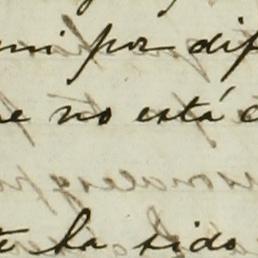 mi por dif
e no está c
te ha sido